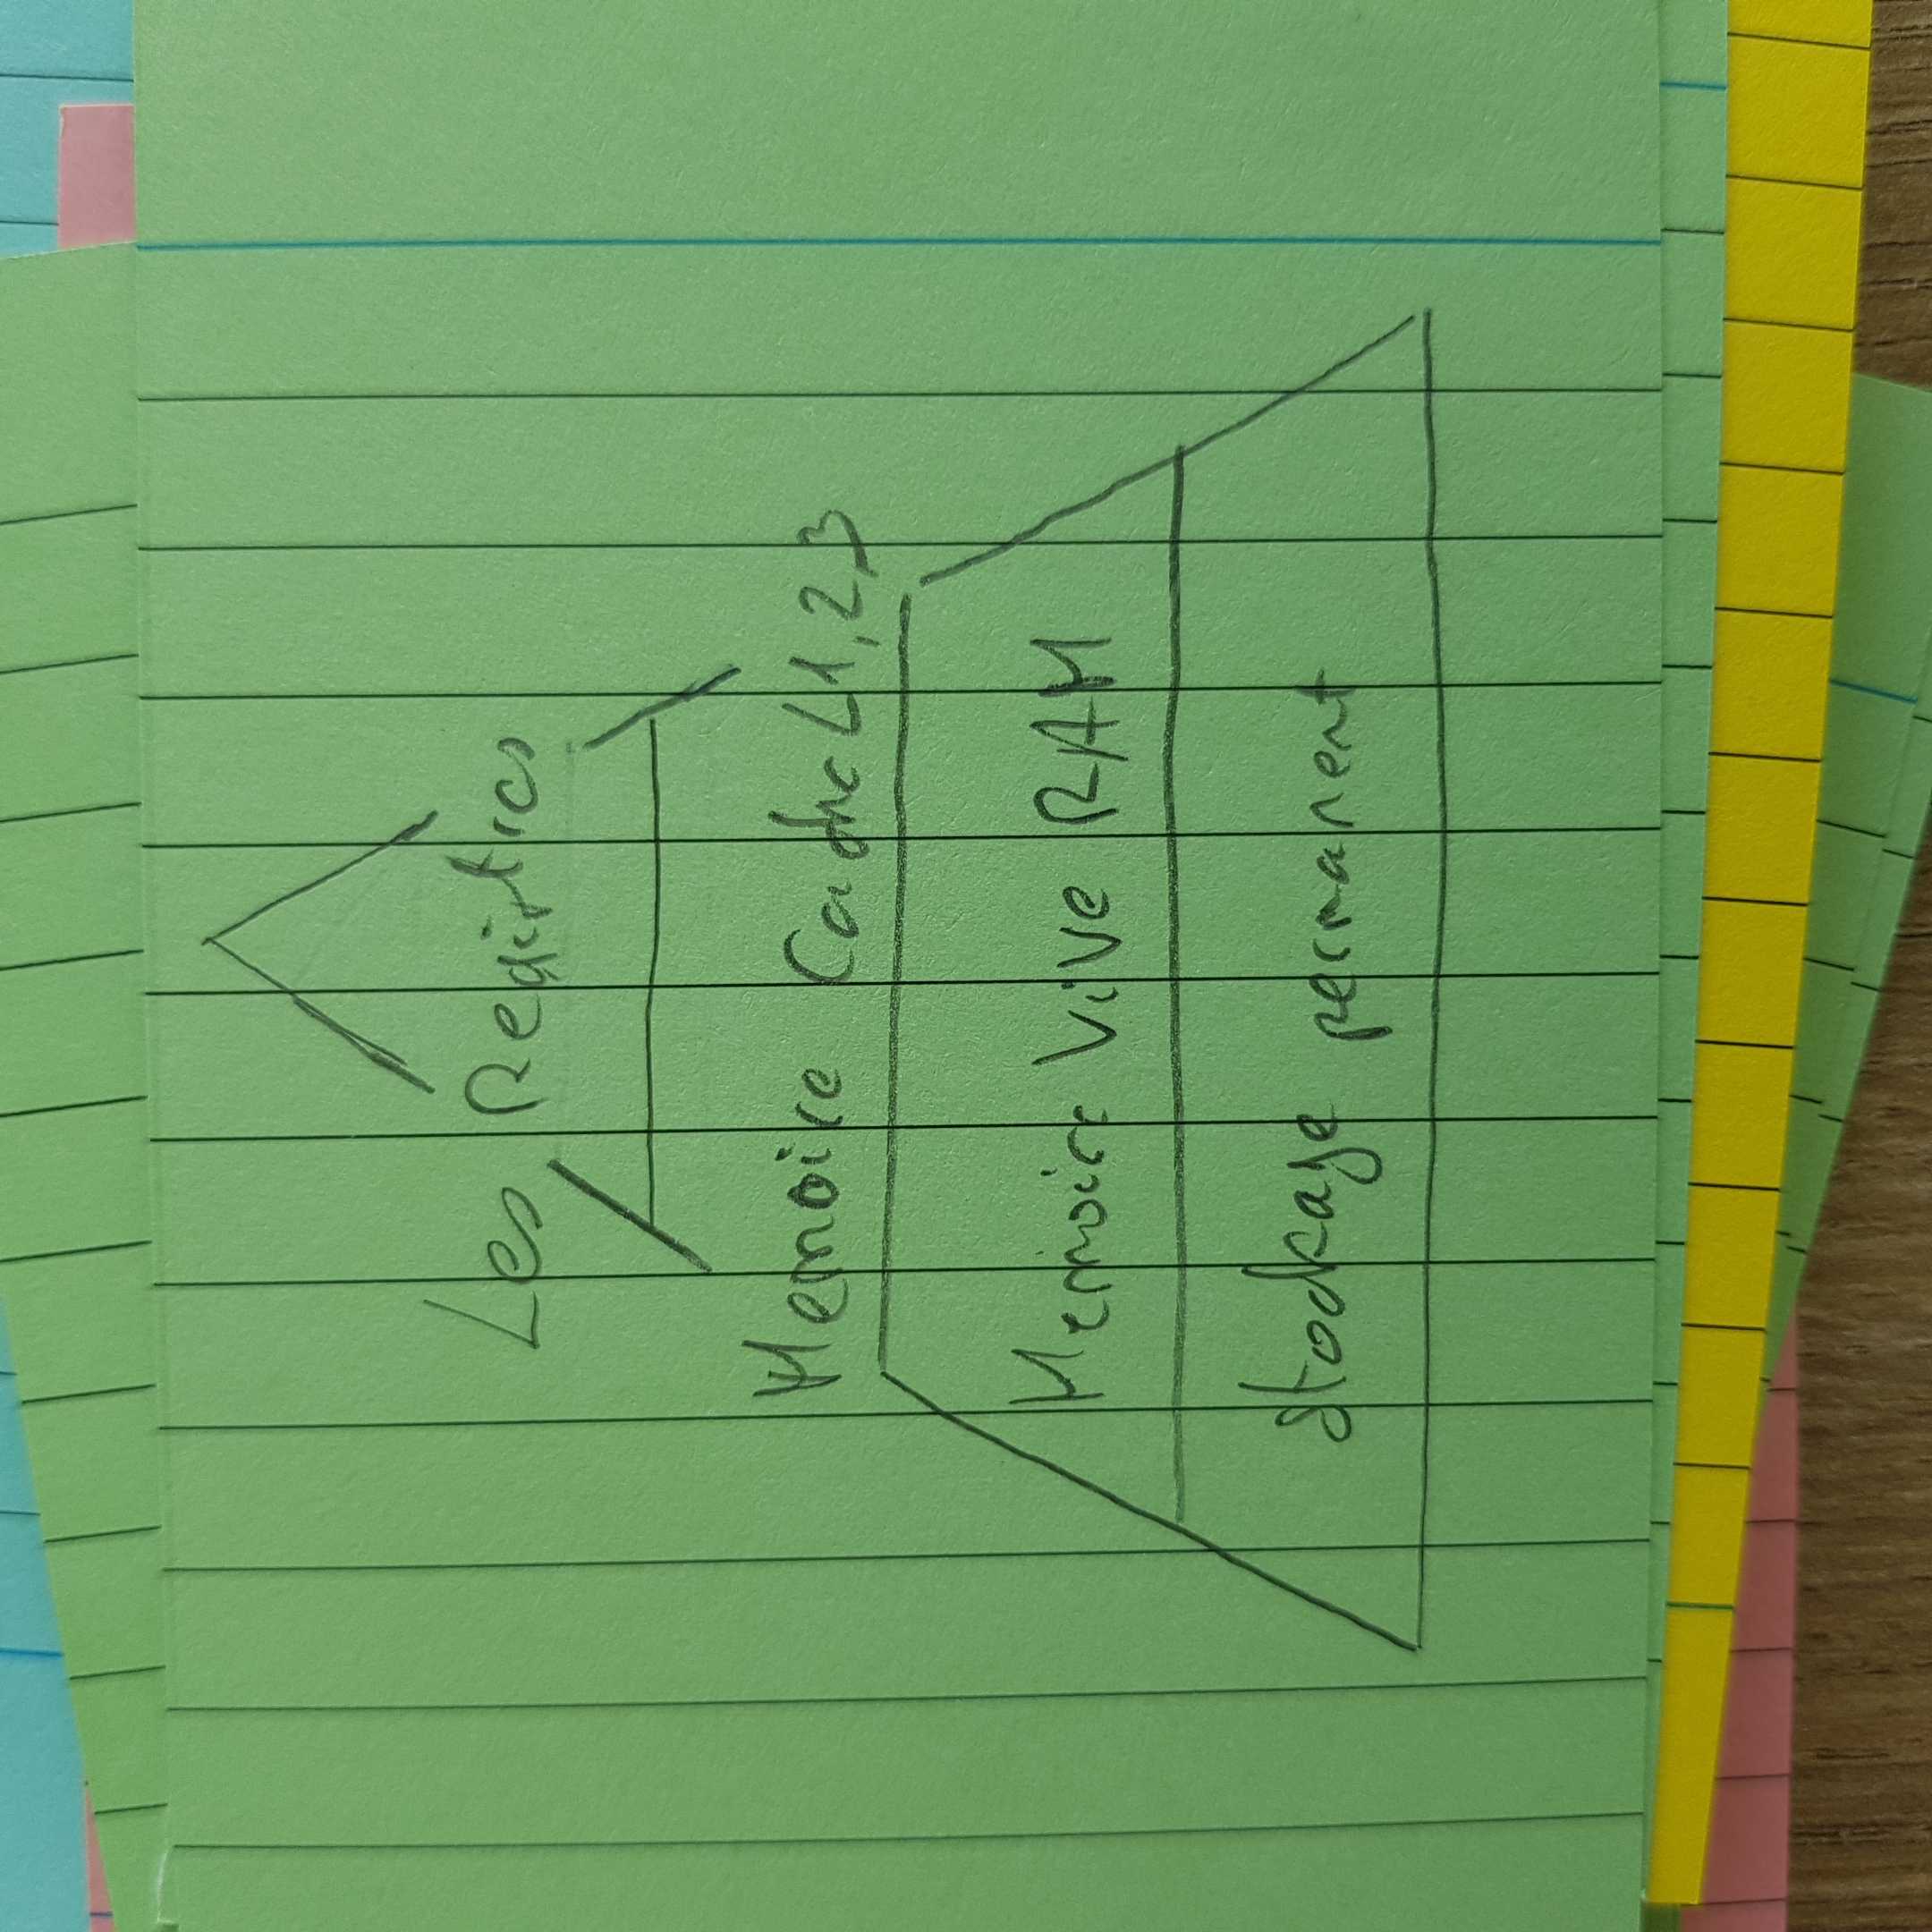 Les Registres
Memoire Cache L1,2,3
Memoire Vive RAM
stockage permanent